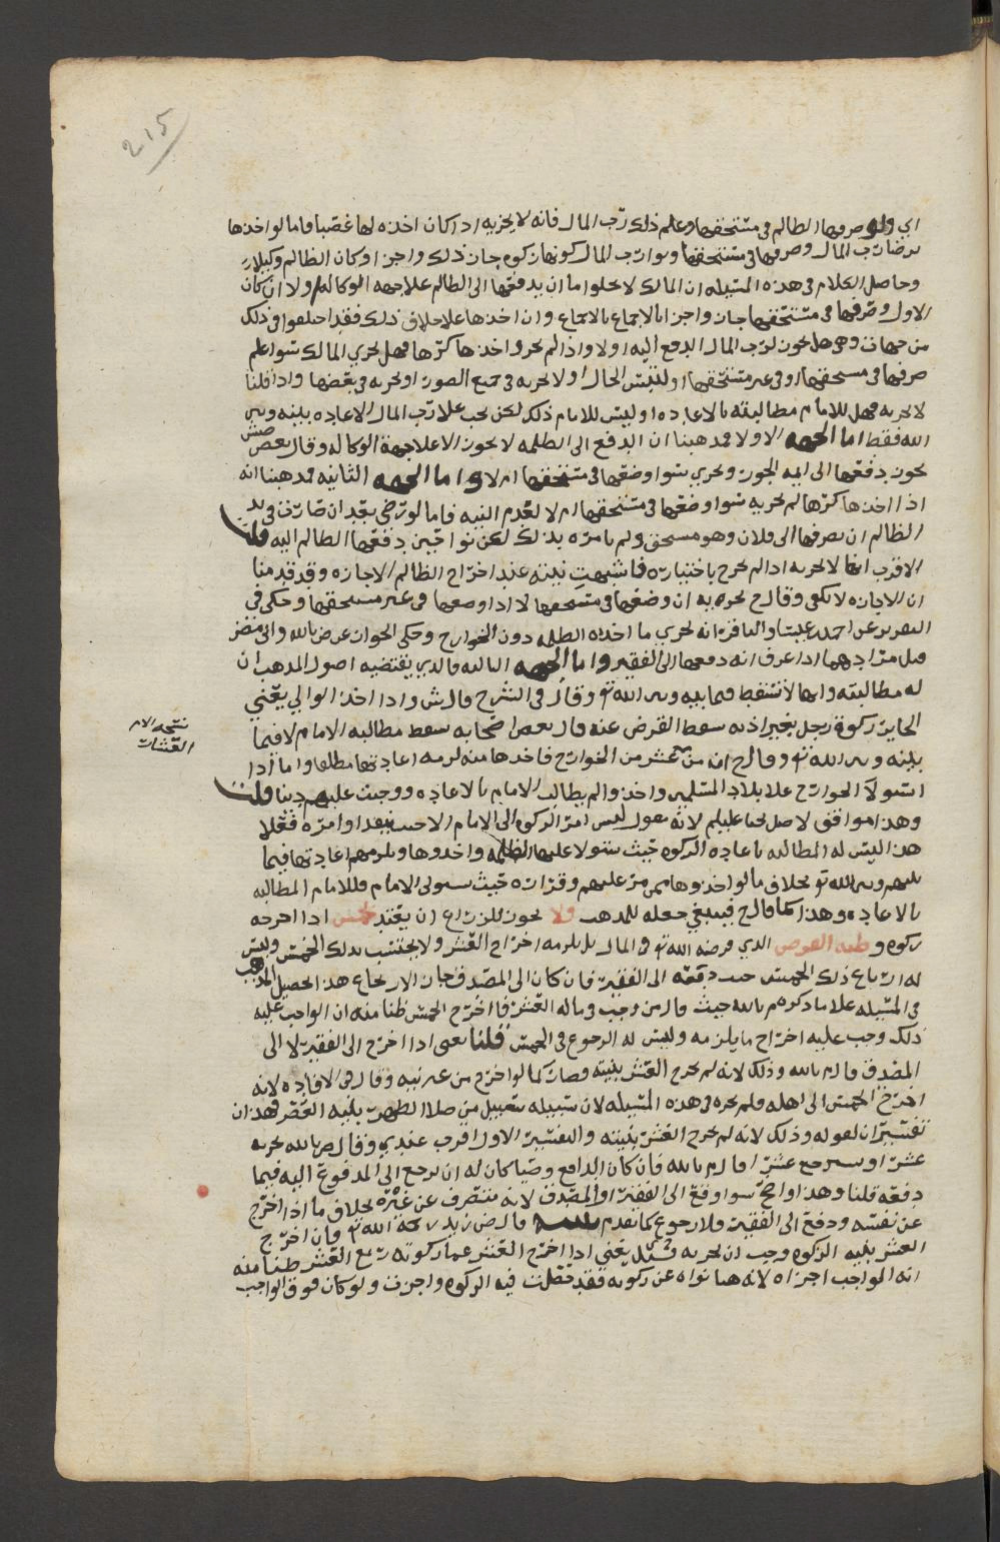 215
اي ولو صرفها الظالم في مستحقها وعلم ذلك رب المال فانه لا يجزيه اذا كان اخذه لها غصبا فاما لو اخذها
برضا رب المال وصرفها في مستحقها ونوا رب المال كونها زكوه جاز ذلك واجزا وكان الظالم وكيلا
وحاصل الكلام في هذه المسيله ان المالك لا يخلوا اما ان يدفعها الى الظالم علا جهه الوكاله ام لا ان كان
الاول وصرفها في مستحقها جاز واجزا بالاجماع وان اخذها علا خلاف ذلك فقد اختلفوا في ذلك
من جهات وهي هل يجوز لرب المال الدفع اليه اولا واذا لم يجز واخذها كرها فهل يجزي المالك سوا علم
صرفها في مستحقها او في غير مستحقها او لتبس الحال او لا يجزيه في جميع الصور او يجزيه في بعضها واذا قلنا
لا يجزيه فهل للامام مطالبته بالاعاده او ليس للامام ذلك لكن يجب علا رب المال الاعاده بينه وبين
الله فقط اما الجهه الاولا فمذهبنا ان الدفع الى الظلمه لا يجوز الا علا جهة الوكاله وقال بعض
يجوز دفعها الى ايمه الجور ويجزي سوا وضعها في مستحقها ام لا واما الجهه الثانيه فمذهبنا انه
اذا اخذها كرها لم يجزيه سوا وضعها في مستحقها ام لا لعدم النيه فاما لو رضي بعد ان صارت في يد
الظالم ان يصرفها الى فلان وهو مستحق ولم يامره بذلك لكن نوا حين دفعها الظالم اليه قلت
الاقرب انها لا تجزيه اذا لم تخرج باختياره فاشبهت نيته عند اخراج الظالم الاجازه وقد قدمنا
ان الاجازه لا تكفي وقال ح تجزيه ان وضعها في مستحقها لا اذا وضعها في غير مستحقها وحكى في
التقرير عن احمد بن عيسا والباقر انه يجزي ما اخذه الظلمه دون الخوارج وحكى الجواز عن ض بالله وابي مضر
قيل مرادهما اذا عرف انه دفعها الى الفقير واما الجهه الثالثه فالذي يقتضيه اصول المذهب ان
له مطالبته وانها لا تسقط فيما بينه وبين الله تع وقال في الشرح قال ش واذا اخذ الوالي يعني
الجاير زكوة رجل بغير اذنه سقط الفرض عنه قال بعض اصحابه سقط مطالبه الامام لا فيما
بينه وبين الله تع وقال ح ان من عشر من الخوارج فاخذها منه لزمه اعادتها مطلقا واما اذا
استولا الخوارج علا بلاد المسلمين واخذوا لم يطالب الامام بالاعاده ووجبت عليهم دينا قلت
وهذا موافق لاصل يحيا عليلم لانه يقول ليس امر الزكوه الى الامام الا حيث ينفذ اوامره فعلا
هذا ليس له المطالبه باعاده الزكوه حيث يستولا عليها الظلمه واخذوها ويلزمهم اعادتها فيما
بينهم وبين الله تع بخلاف ما لو اخذوها ممن مر عليهم وقراره حيث يستولي الامام فللامام المطالبه
بالاعاده وهذا كما قال ح فينبغي جعله للمذهب ولا يجوز للزراع ان يعتد بخمس اذا اخرجه
زكوه وظنه الفرض الذي فرضه الله تع في المال بل يلزمه اخراج العشر ولا يحتسب بذلك الخمس وليس
له ارتجاع ذلك الخمس حيث دفعه الى الفقير فان كان الى المصدق جاز الارتجاع هذا تحصيل المذهب
في المسيله علا ما ذكره م بالله حيث قال من وجب في ماله العشر فاخرج الخمس ظنا منه ان الواجب عليه
ذلك وجب عليه اخراج ما يلزمه وليس له الرجوع في الخمس قلنا يعني اذا اخرج الى الفقير لا الى
المصدق قال م بالله وذلك لانه لم يخرج العشر بنيته وصار كما لو اخرج من غير نيه وقال في الافاده لانه
اخرج الخمس الى اهله فلم يجزه في هذه المسيله لان سبيله سبيل من صلا الظهر بنيه العصر فهذان
تفسيران لقوله وذلك لانه لم يخرج العشر بنيته والتفسير الاول اقرب عندي وقال ض بالله يجزيه
عشرا ويسترجع عشرا قال م بالله فان كان الدافع وصيا كان له ان يرجع الى المدفوع اليه فيما
دفعه قلنا وهذا واضح سوا وقع الى الفقير او المصدق لانه متصرف عن غيره بخلاف ما اذا اخرج
عن نفسه ودفع الى الفقير فلا رجوع كما تقدم قال ض زيد رحمه الله تع وان اخرج
العشر بنيه الزكوه وجب ان يجزيه يعني اذا اخرج العشر عما زكوته ربع العشر ظنا منه
انه الواجب اجزاه لانه هنا نواه عن زكوته فقد حصلت فيه الزكوه واجزت ولو كان فوق الواجب